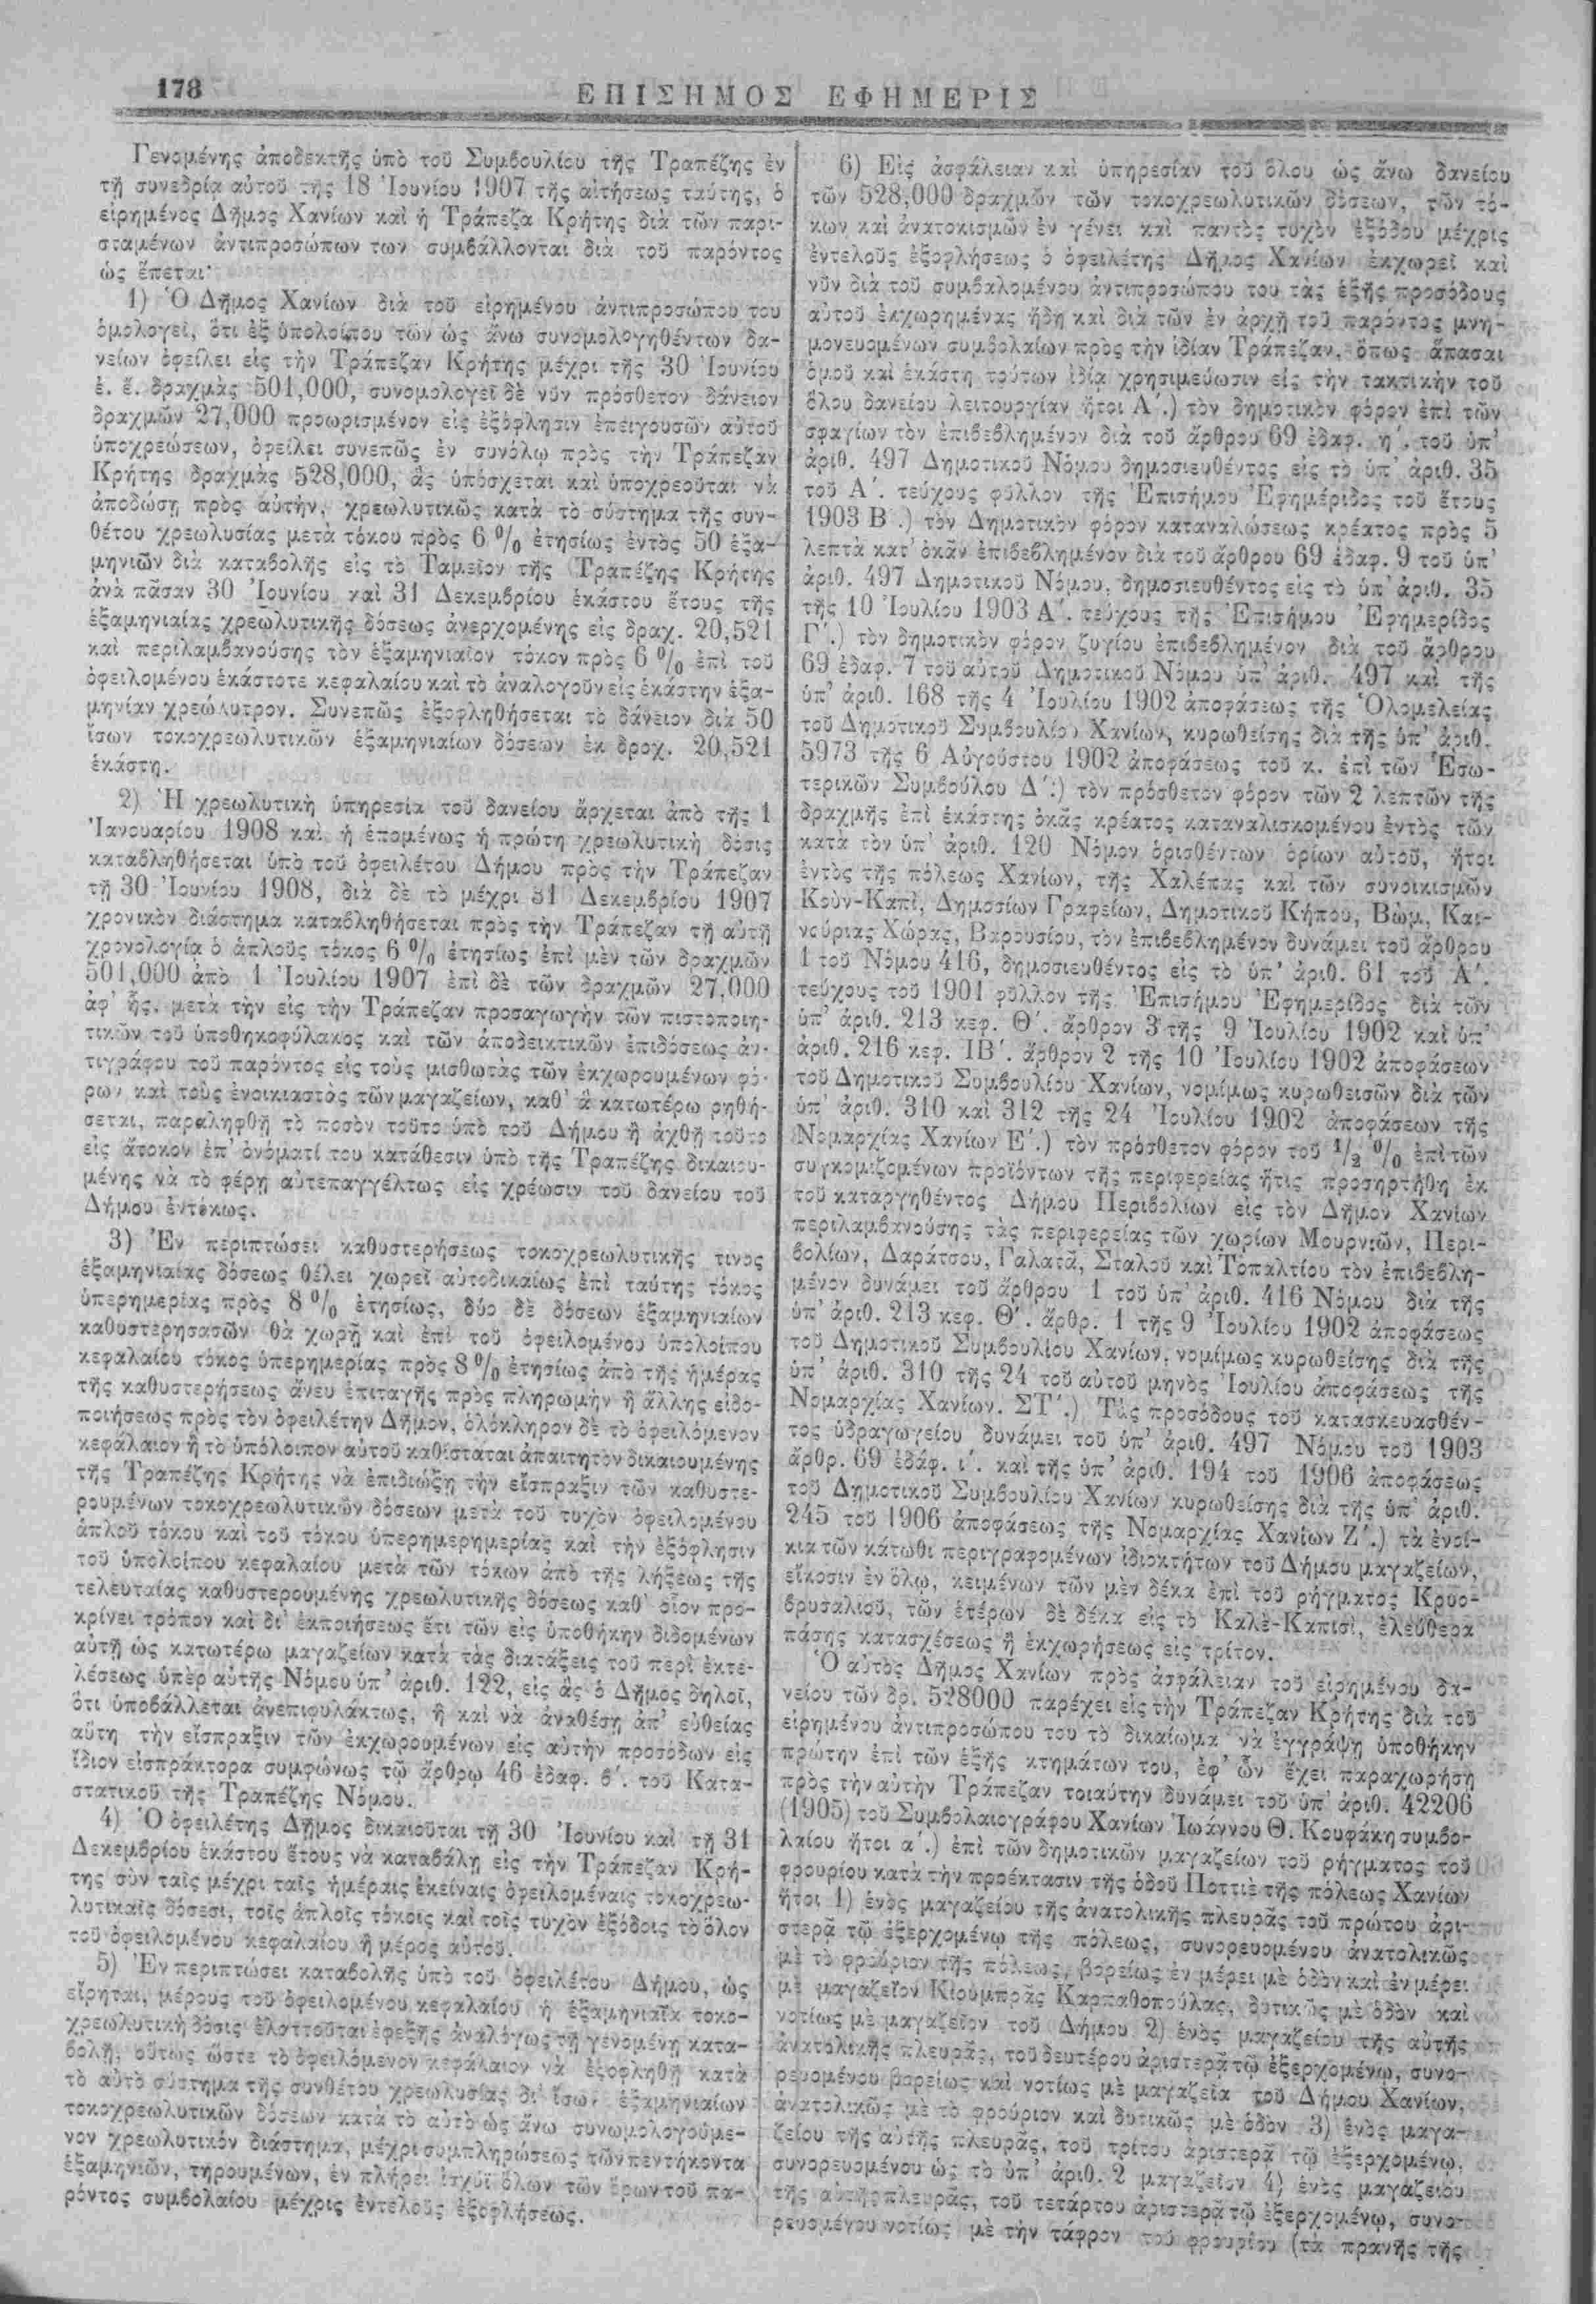 178
ΕΠΙΣΗΜΟΣ ΕΦΗΜΕΡΙΣ
Γενομένης ἀποδεκτῆς ὑπὸ τοῦ Συμβουλίου τῆς Τραπέζης ἐν
τῇ συνεδρίᾳ αὐτοῦ τῆς 18 Ἰουνίου 1907 τῆς αἰτήσεως ταύτης, ὁ
εἰρημένος Δῆμος Χανίων καὶ ἡ Τράπεζα Κρήτης διὰ τῶν παρι-
σταμένων ἀντιπροσώπων των συμβάλλονται διὰ τοῦ παρόντος
ὡς ἕπεται·
1) Ὁ Δῆμος Χανίων διὰ τοῦ εἰρημένου ἀντιπροσώπου του
ὁμολογεῖ, ὅτι ἐξ ὑπολοίπου τῶν ὡς ἄνω συνομολογηθέντων δα-
νείων ὀφείλει εἰς τὴν Τράπεζαν Κρήτης μέχρι τῆς 30 Ἰουνίου
ἐ. ἔ. δραχμὰς 501,000, συνομολογεῖ δὲ νῦν πρόσθετον δάνειον
δραχμῶν 27,000 προωρισμένον εἰς ἐξόφλησιν ἐπειγουσῶν αὐτοῦ
ὑποχρεώσεων, ὀφείλει συνεπῶς ἐν συνόλῳ πρὸς τὴν Τράπεζαν
Κρήτης δραχμὰς 528,000, ἃς ὑπόσχεται καὶ ὑποχρεοῦται νὰ
ἀποδώσῃ πρὸς αὐτήν, χρεωλυτικῶς κατὰ τὸ σύστημα τῆς συν-
θέτου χρεωλυσίας μετὰ τόκου πρὸς 6 % ἐτησίως ἐντὸς 50 ἑξα-
μηνιῶν διὰ καταβολῆς εἰς τὸ Ταμεῖον τῆς Τραπέζης Κρήτης
ἀνὰ πᾶσαν 30 Ἰουνίου καὶ 31 Δεκεμβρίου ἑκάστου ἔτους τῆς
ἑξαμηνιαίας χρεωλυτικῆς δόσεως ἀνερχομένης εἰς δραχ. 20,521
καὶ περιλαμβανούσης τὸν ἑξαμηνιαῖον τόκον πρὸς 6 % ἐπὶ τοῦ
ὀφειλομένου ἑκάστοτε κεφαλαίου καὶ τὸ ἀναλογοῦν εἰς ἑκάστην ἑξα-
μηνίαν χρεώλυτρον. Συνεπῶς ἐξοφληθήσεται τὸ δάνειον διὰ 50
ἴσων τοκοχρεωλυτικῶν ἑξαμηνιαίων δόσεων ἐκ δροχ. 20,521
ἑκάστη.
2) Ἡ χρεωλυτικὴ ὑπηρεσία τοῦ δανείου ἄρχεται ἀπὸ τῆς 1
Ἰανουαρίου 1908 καὶ ἡ ἑπομένως ἡ πρώτη χρεωλυτικὴ δόσις
καταβληθήσεται ὑπὸ τοῦ ὀφειλέτου Δήμου πρὸς τὴν Τράπεζαν
τῇ 30 Ἰουνίου 1908, διὰ δὲ τὸ μέχρι 31 Δεκεμβρίου 1907
χρονικὸν διάστημα καταβληθήσεται πρὸς τὴν Τράπεζαν τῇ αὐτῇ
χρονολογίᾳ ὁ ἁπλοῦς τόκος 6 % ἐτησίως ἐπὶ μὲν τῶν δραχμῶν
501,000 ἀπὸ 1 Ἰουλίου 1907 ἐπὶ δὲ τῶν δραχμῶν 27,000
ἀφ' ἧς, μετὰ τὴν εἰς τὴν Τράπεζαν προσαγωγὴν τῶν πιστοποιη-
τικῶν τοῦ ὑποθηκοφύλακος καὶ τῶν ἀποδεικτικῶν ἐπιδόσεως ἀν-
τιγράφου τοῦ παρόντος εἰς τοὺς μισθωτὰς τῶν ἐκχωρουμένων φό-
ρων καὶ τοὺς ἐνοικιαστὰς τῶν μαγαζείων, καθ' ἃ κατωτέρω ρηθή-
σεται, παραληφθῇ τὸ ποσὸν τοῦτο ὑπὸ τοῦ Δήμου ἢ ἀχθῇ τοῦτο
εἰς ἄτοκον ἐπ' ὀνόματί του κατάθεσιν ὑπὸ τῆς Τραπέζης δικαιου-
μένης νὰ τὸ φέρῃ αὐτεπαγγέλτως εἰς χρέωσιν τοῦ δανείου τοῦ
Δήμου ἐντόκως.
3) Ἐν περιπτώσει καθυστερήσεως τοκοχρεωλυτικῆς τινος
ἑξαμηνιαίας δόσεως θέλει χωρεῖ αὐτοδικαίως ἐπὶ ταύτης τόκος
ὑπερημερίας πρὸς 8 % ἐτησίως, δύο δὲ δόσεων ἑξαμηνιαίων
καθυστερησασῶν θὰ χωρῇ καὶ ἐπὶ τοῦ ὀφειλομένου ὑπολοίπου
κεφαλαίου τόκος ὑπερημερίας πρὸς 8 % ἐτησίως ἀπὸ τῆς ἡμέρας
τῆς καθυστερήσεως ἄνευ ἐπιταγῆς πρὸς πληρωμὴν ἢ ἄλλης εἰδο-
ποιήσεως πρὸς τὸν ὀφειλέτην Δῆμον, ὁλόκληρον δὲ τὸ ὀφειλόμενον
κεφάλαιον ἢ τὸ ὑπόλοιπον αὐτοῦ καθίσταται ἀπαιτητὸν δικαιουμένης
τῆς Τραπέζης Κρήτης νὰ ἐπιδιώξῃ τὴν εἴσπραξιν τῶν καθυστε-
ρουμένων τοκοχρεωλυτικῶν δόσεων μετὰ τοῦ τυχὸν ὀφειλομένου
ἁπλοῦ τόκου καὶ τοῦ τόκου ὑπερημερημερίας καὶ τὴν ἐξόφλησιν
τοῦ ὑπολοίπου κεφαλαίου μετὰ τῶν τόκων ἀπὸ τῆς λήξεως τῆς
τελευταίας καθυστερουμένης χρεωλυτικῆς δόσεως καθ' οἷον προ-
κρίνει τρόπον καὶ δι' ἐκποιήσεως ἔτι τῶν εἰς ὑποθήκην διδομένων
αὐτῇ ὡς κατωτέρω μαγαζείων κατὰ τὰς διατάξεις τοῦ περὶ ἐκτε-
λέσεως ὑπὲρ αὐτῆς Νόμου ὑπ' ἀριθ. 122, εἰς ἃς ὁ Δῆμος δηλοῖ,
ὅτι ὑποβάλλεται ἀνεπιφυλάκτως, ἢ καὶ νὰ ἀναθέσῃ ἀπ' εὐθείας
αὕτη τὴν εἴσπραξιν τῶν ἐκχωρουμένων εἰς αὐτὴν προσόδων εἰς
ἴδιον εἰσπράκτορα συμφώνως τῷ ἄρθρῳ 46 ἐδαφ. β΄. τοῦ Κατα-
στατικοῦ τῆς Τραπέζης Νόμου.
4) Ὁ ὀφειλέτης Δῆμος δικαιοῦται τῇ 30 Ἰουνίου καὶ τῇ 31
Δεκεμβρίου ἑκάστου ἔτους νὰ καταβάλῃ εἰς τὴν Τράπεζαν Κρή-
της σὺν ταῖς μέχρι ταῖς ἡμέραις ἐκείναις ὀφειλομέναις τοκοχρεω-
λυτικαῖς δόσεσι, τοῖς ἁπλοῖς τόκοις καὶ τοῖς τυχὸν ἐξόδοις τὸ ὅλον
τοῦ ὀφειλομένου κεφαλαίου ἢ μέρος αὐτοῦ.
5) Ἐν περιπτώσει καταβολῆς ὑπὸ τοῦ ὀφειλέτου Δήμου, ὡς
εἴρηται, μέρους τοῦ ὀφειλομένου κεφαλαίου ἡ ἑξαμηνιαῖα τοκο-
χρεωλυτικὴ δόσις ἐλαττοῦται ἐφεξῆς ἀναλόγως τῇ γενομένῃ κατα-
βολῇ, οὕτως ὥστε τὸ ὀφειλόμενον κεφάλαιον νὰ ἐξοφληθῇ κατὰ
τὸ αὐτὸ σύστημα τῆς συνθέτου χρεωλυσίας δι' ἴσων ἑξαμηνιαίων
τοκοχρεωλυτικῶν δόσεων κατὰ τὸ αὐτὸ ὡς ἄνω συνωμολογούμε-
νον χρεωλυτικὸν διάστημα, μέχρι συμπληρώσεως τῶν πεντήκοντα
ἑξαμηνιῶν, τηρουμένων, ἐν πλήρει ἰσχύϊ ὅλων τῶν ὅρων τοῦ πα-
ρόντος συμβολαίου μέχρις ἐντελοῦς ἐξοφλήσεως.
6) Εἰς ἀσφάλειαν καὶ ὑπηρεσίαν τοῦ ὅλου ὡς ἄνω δανείου
τῶν 528,000 δραχμῶν τῶν τοκοχρεωλυτικῶν δόσεων, τῶν τό-
κων καὶ ἀνατοκισμῶν ἐν γένει καὶ παντὸς τυχὸν ἐξόδου μέχρις
ἐντελοῦς ἐξοφλήσεως ὁ ὀφειλέτης Δῆμος Χανίων ἐκχωρεῖ καὶ
νῦν διὰ τοῦ συμβαλομένου ἀντιπροσώπου του τὰς ἑξῆς προσόδους
αὐτοῦ ἐκχωρημένας ἤδη καὶ διὰ τῶν ἐν ἀρχῇ τοῦ παρόντος μνη-
μονευομένων συμβολαίων πρὸς τὴν ἰδίαν Τράπεζαν, ὅπως ἅπασαι
ὁμοῦ καὶ ἑκάστη τούτων ἰδίᾳ χρησιμεύωσιν εἰς τὴν τακτικὴν τοῦ
ὅλου δανείου λειτουργίαν ἤτοι Α΄.) τὸν δημοτικὸν φόρον ἐπὶ τῶν
σφαγίων τὸν ἐπιβεβλημένον διὰ τοῦ ἄρθρου 69 ἐδαφ. η΄. τοῦ ὑπ'
ἀριθ. 497 Δημοτικοῦ Νόμου δημοσιευθέντος εἰς τὸ ὑπ' ἀριθ. 35
τοῦ Α΄. τεύχους φύλλον τῆς Ἐπισήμου Ἐφημερίδος τοῦ ἔτους
1903 Β΄.) τὸν Δημοτικὸν φόρον καταναλώσεως κρέατος πρὸς 5
λεπτὰ κατ' ὀκᾶν ἐπιβεβλημένον διὰ τοῦ ἄρθρου 69 ἐδαφ. 9 τοῦ ὑπ'
ἀριθ. 497 Δημοτικοῦ Νόμου, δημοσιευθέντος εἰς τὸ ὑπ' ἀριθ. 35
τῆς 10 Ἰουλίου 1903 Α΄. τεύχους τῆς Ἐπισήμου Ἐφημερίδος
Γ΄.) τὸν δημοτικὸν φόρον ζυγίου ἐπιβεβλημένον διὰ τοῦ ἄρθρου
69 ἐδαφ. 7 τοῦ αὐτοῦ Δημοτικοῦ Νόμου ὑπ' ἀριθ. 497 καὶ τῆς
ὑπ' ἀριθ. 168 τῆς 4 Ἰουλίου 1902 ἀποφάσεως τῆς Ὁλομελείας
τοῦ Δημοτικοῦ Συμβουλίου Χανίων, κυρωθείσης διὰ τῆς ὑπ' ἀριθ.
5973 τῆς 6 Αὐγούστου 1902 ἀποφάσεως τοῦ κ. ἐπὶ τῶν Ἐσω-
τερικῶν Συμβούλου Δ΄.) τὸν πρόσθετον φόρον τῶν 2 λεπτῶν τῆς
δραχμῆς ἐπὶ ἑκάστης ὀκᾶς κρέατος καταναλισκομένου ἐντὸς τῶν
κατὰ τὸν ὑπ' ἀριθ. 120 Νόμον ὁρισθέντων ὁρίων αὐτοῦ, ἤτοι
ἐντὸς τῆς πόλεως Χανίων, τῆς Χαλέπας καὶ τῶν συνοικισμῶν
Κοὺν-Καπὶ, Δημοσίων Γραφείων, Δημοτικοῦ Κήπου, Βὼμ, Και-
νούριας Χώρας, Βαρουσίου, τὸν ἐπιβεβλημένον δυνάμει τοῦ ἄρθρου
1 τοῦ Νόμου 416, δημοσιευθέντος εἰς τὸ ὑπ' ἀριθ. 61 τοῦ Α΄.
τεύχους τοῦ 1901 φύλλον τῆς Ἐπισήμου Ἐφημερίδος διὰ τῶν
ὑπ' ἀριθ. 213 κεφ. Θ΄. ἄρθρον 3 τῆς 9 Ἰουλίου 1902 καὶ ὑπ'
ἀριθ. 216 κεφ. ΙΒ΄. ἄρθρον 2 τῆς 10 Ἰουλίου 1902 ἀποφάσεων
τοῦ Δημοτικοῦ Συμβουλίου Χανίων, νομίμως κυρωθεισῶν διὰ τῶν
ὑπ' ἀριθ. 310 καὶ 312 τῆς 24 Ἰουλίου 1902 ἀποφάσεων τῆς
Νομαρχίας Χανίων Ε΄.) τὸν πρόσθετον φόρον τοῦ ½ % ἐπὶ τῶν
συγκομιζομένων προϊόντων τῆς περιφερείας ἥτις προσηρτήθη ἐκ
τοῦ καταργηθέντος Δήμου Περιβολίων εἰς τὸν Δῆμον Χανίων
περιλαμβανούσης τὰς περιφερείας τῶν χωρίων Μουρνιῶν, Περι-
βολίων, Δαράτσου, Γαλατᾶ, Σταλοῦ καὶ Τοπαλτίου τὸν ἐπιβεβλη-
μένον δυνάμει τοῦ ἄρθρου 1 τοῦ ὑπ' ἀριθ. 416 Νόμου διὰ τῆς
ὑπ' ἀριθ. 213 κεφ. Θ΄. ἄρθρ. 1 τῆς 9 Ἰουλίου 1902 ἀποφάσεως
τοῦ Δημοτικοῦ Συμβουλίου Χανίων, νομίμως κυρωθείσης διὰ τῆς
ὑπ' ἀριθ. 310 τῆς 24 τοῦ αὐτοῦ μηνὸς Ἰουλίου ἀποφάσεως τῆς
Νομαρχίας Χανίων. ΣΤ΄.) Τὰς προσόδους τοῦ κατασκευασθέν-
τος ὑδραγωγείου δυνάμει τοῦ ὑπ' ἀριθ. 497 Νόμου τοῦ 1903
ἄρθρ. 69 ἐδάφ. ι΄. καὶ τῆς ὑπ' ἀριθ. 194 τοῦ 1906 ἀποφάσεως
τοῦ Δημοτικοῦ Συμβουλίου Χανίων κυρωθείσης διὰ τῆς ὑπ' ἀριθ.
245 τοῦ 1906 ἀποφάσεως τῆς Νομαρχίας Χανίων Ζ΄.) τὰ ἐνοί-
κια τῶν κάτωθι περιγραφομένων ἰδιοκτήτων τοῦ Δήμου μαγαζείων,
εἴκοσιν ἐν ὅλῳ, κειμένων τῶν μὲν δέκα ἐπὶ τοῦ ρήγματος Κρυο-
βρυσαλιοῦ, τῶν ἑτέρων δὲ δέκα εἰς τὸ Καλὲ-Καπισί, ἐλεύθερα
πάσης κατασχέσεως ἢ ἐκχωρήσεως εἰς τρίτον.
Ὁ αὐτὸς Δῆμος Χανίων πρὸς ἀσφάλειαν τοῦ εἰρημένου δα-
νείου τῶν δρ. 528000 παρέχει εἰς τὴν Τράπεζαν Κρήτης διὰ τοῦ
εἰρημένου ἀντιπροσώπου του τὸ δικαίωμα νὰ ἐγγράψῃ ὑποθήκην
πρώτην ἐπὶ τῶν ἑξῆς κτημάτων του, ἐφ' ὧν ἔχει παραχωρήσῃ
πρὸς τὴν αὐτὴν Τράπεζαν τοιαύτην δυνάμει τοῦ ὑπ' ἀριθ. 42206
(1905) τοῦ Συμβολαιογράφου Χανίων Ἰωάννου Θ. Κουφάκη συμβο-
λαίου ἤτοι α΄.) ἐπὶ τῶν δημοτικῶν μαγαζείων τοῦ ρήγματος τοῦ
φρουρίου κατὰ τὴν προέκτασιν τῆς ὁδοῦ Ποττιὲ τῆς πόλεως Χανίων
ἤτοι 1) ἑνὸς μαγαζείου τῆς ἀνατολικῆς πλευρᾶς τοῦ πρώτου ἀρι-
στερᾷ τῷ ἐξερχομένῳ τῆς πόλεως, συνορευομένου ἀνατολικῶς
μὲ τὸ φρούριον τῆς πόλεως, βορείως ἐν μέρει μὲ ὁδὸν καὶ ἐν μέρει
μὲ μαγαζεῖον Κιουμπρᾶς Καρπαθοπούλας, δυτικῶς μὲ ὁδὸν καὶ
νοτίως μὲ μαγαζεῖον τοῦ Δήμου 2) ἑνὸς μαγαζείου τῆς αὐτῆς
ἀνατολικῆς πλευρᾶς, τοῦ δευτέρου ἀριστερᾷ τῷ ἐξερχομένῳ, συνο-
ρευομένου βορείως καὶ νοτίως μὲ μαγαζεῖα τοῦ Δήμου Χανίων,
ἀνατολικῶς μὲ τὸ φρούριον καὶ δυτικῶς μὲ ὁδὸν 3) ἑνὸς μαγα-
ζείου τῆς αὐτῆς πλευρᾶς, τοῦ τρίτου ἀριστερᾷ τῷ ἐξερχομένῳ,
συνορευομένου ὡς τὸ ὑπ' ἀριθ. 2 μαγαζεῖον 4) ἑνὸς μαγαζείου
τῆς αὐτῆς πλευρᾶς, τοῦ τετάρτου ἀριστερᾷ τῷ ἐξερχομένῳ, συνο-
ρευομένου νοτίως μὲ τὴν τάφρον τοῦ φρουρίου (τὰ πρανῆς τῆς